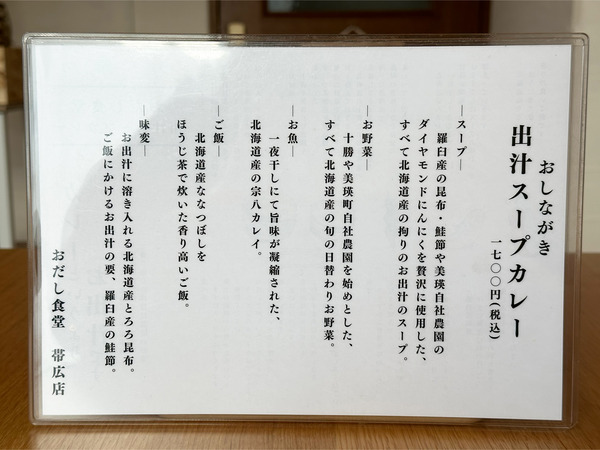 おしながき
出汁スープカレー
一七〇〇円(税込)
―スープ―
羅臼産の昆布・鮭節や美瑛自社農園の
ダイヤモンドにんにくを贅沢に使用した、
すべて北海道産の拘りのお出汁のスープ。
―お野菜―
十勝や美瑛町自社農園を始めとした、
すべて北海道産の旬の日替わりお野菜。
―お魚―
一夜干しにて旨味が凝縮された、
北海道産の宗八カレイ。
―ご飯―
北海道産ななつぼしを
ほうじ茶で炊いた香り高いご飯。
―味変―
お出汁に溶き入れる北海道産とろろ昆布。
ご飯にかけるお出汁の要、羅臼産の鮭節。
おだし食堂 帯広店